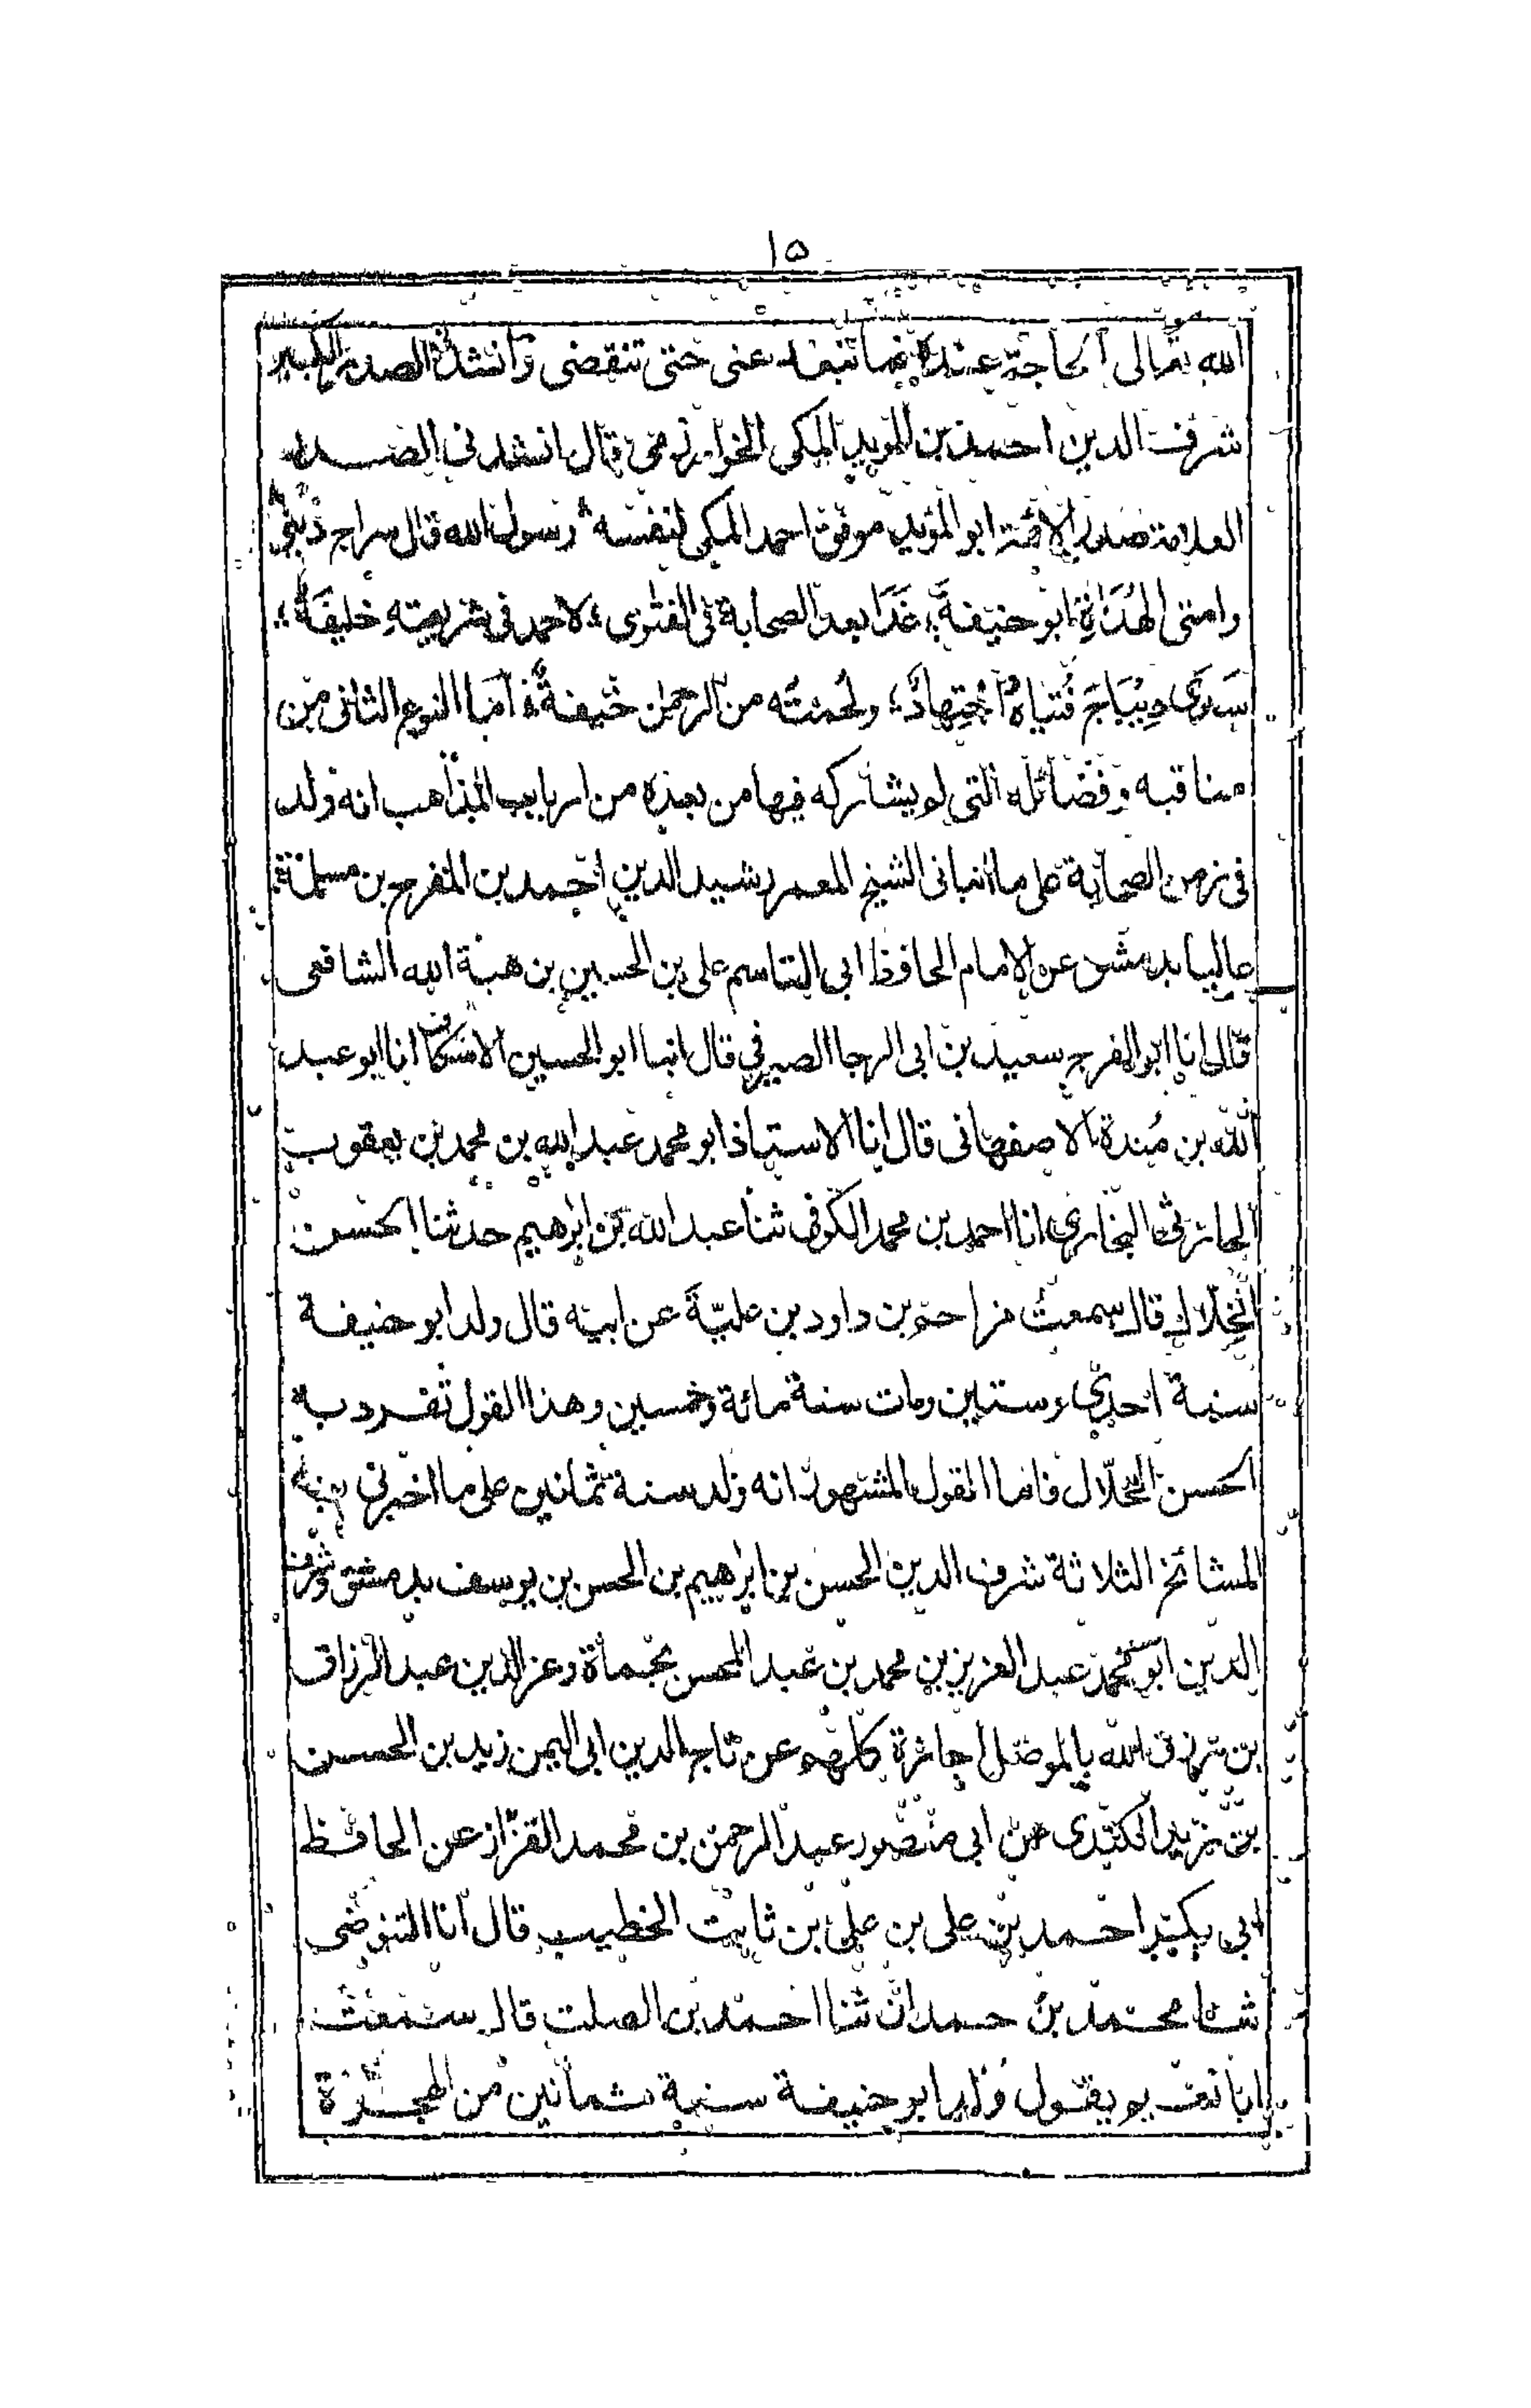 ١٥
الله تعالى الحاجة عنده فما تبعد عنى حتى تنقضى وانشدنى الصدر الكبير
شرف الدين احمد بن المويد المكى الخوارزمى قال انشدنى الصدر
العلامة صدر الائمة ابو المؤيد موفق احمد المكى لنفسه رسول الله قال سراج دينى
وامتى الهداة ابو حنيفة؛ غدا بعد الصحابة فى الفتوى؛ لاحمد فى شريعته خليفة؛
سدى ديباج فتياه اجتهاد؛ ولحمته من الرحمن خيفة؛ اما النوع الثانى من
مناقبه وفضائله التى لم يشاركه فيها من بعده من ارباب المذاهب انه ولد
فى زمن الصحابة على ما انبانى الشيخ المعمر رشيد الدين احمد بن المفرج بن مسلمة
بدمشق عن الامام الحافظ ابى القاسم على بن الحسين بن هبة الله الشافعى
قال انا ابو الفرج سعيد بن ابى الرجا الصيرفي قال انبا ابو الحسين الاسكاف انا ابو عبد
الله بن مندة الاصفهانى قال انا الاستاذ ابو محمد عبد الله بن محمد بن يعقوب
الحارثى البخارى انا احمد بن محمد الكوفى ثنا عبد الله بن ابرهيم حدثنا الحسن
الخلال قال سمعت مزاحم بن داود بن علية عن ابيه قال ولد ابو حنيفة
سنة احدى وستين ومات سنة مائة وخمسين وهذا القول تفرد به
الحسن الخلال فاما القول المشهور انه ولد سنة ثمانين على ما اخبرنى به
المشائخ الثلاثة شرف الدين الحسن بن ابراهيم بن الحسن بن يوسف بدمشق وشرف
الدين ابو محمد عبد العزيز بن محمد بن عبد المحسن بحماة وعز الدين عبد الرزاق
بن رزق الله بالموصل اجازة كلهم عن تاج الدين ابى اليمن زيد بن الحسن
بن زيد الكندى عن ابى منصور عبد الرحمن بن محمد القزاز عن الحافظ
ابى بكر احمد بن على بن على بن ثابت الخطيب قال انا التنوخى
ثنا محمد بن حمدان ثنا احمد بن الصلت قال سمعت
ابا نعيم يقول ولد ابو حنيفة سنة ثمانين من الهجرة